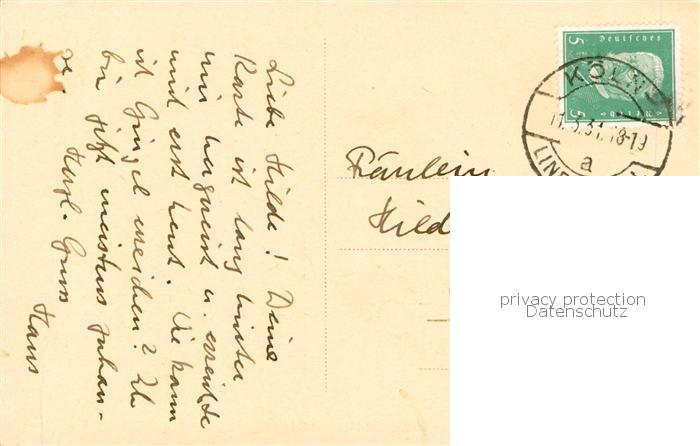 Liebe Hilde! Deine
Karte ist lang hinter
mir hergereist u. erreichte
mich erst heut. Wie kann
ist Gingel erreichen? Ich
bin jetzt meistens zuhau-
se.
Herzl. Gruss
Hans
Fräulein
Hild
Deutsches
5
5
KÖLN
11.3.31.18-19
a
LIND
privacy protection
Datenschutz